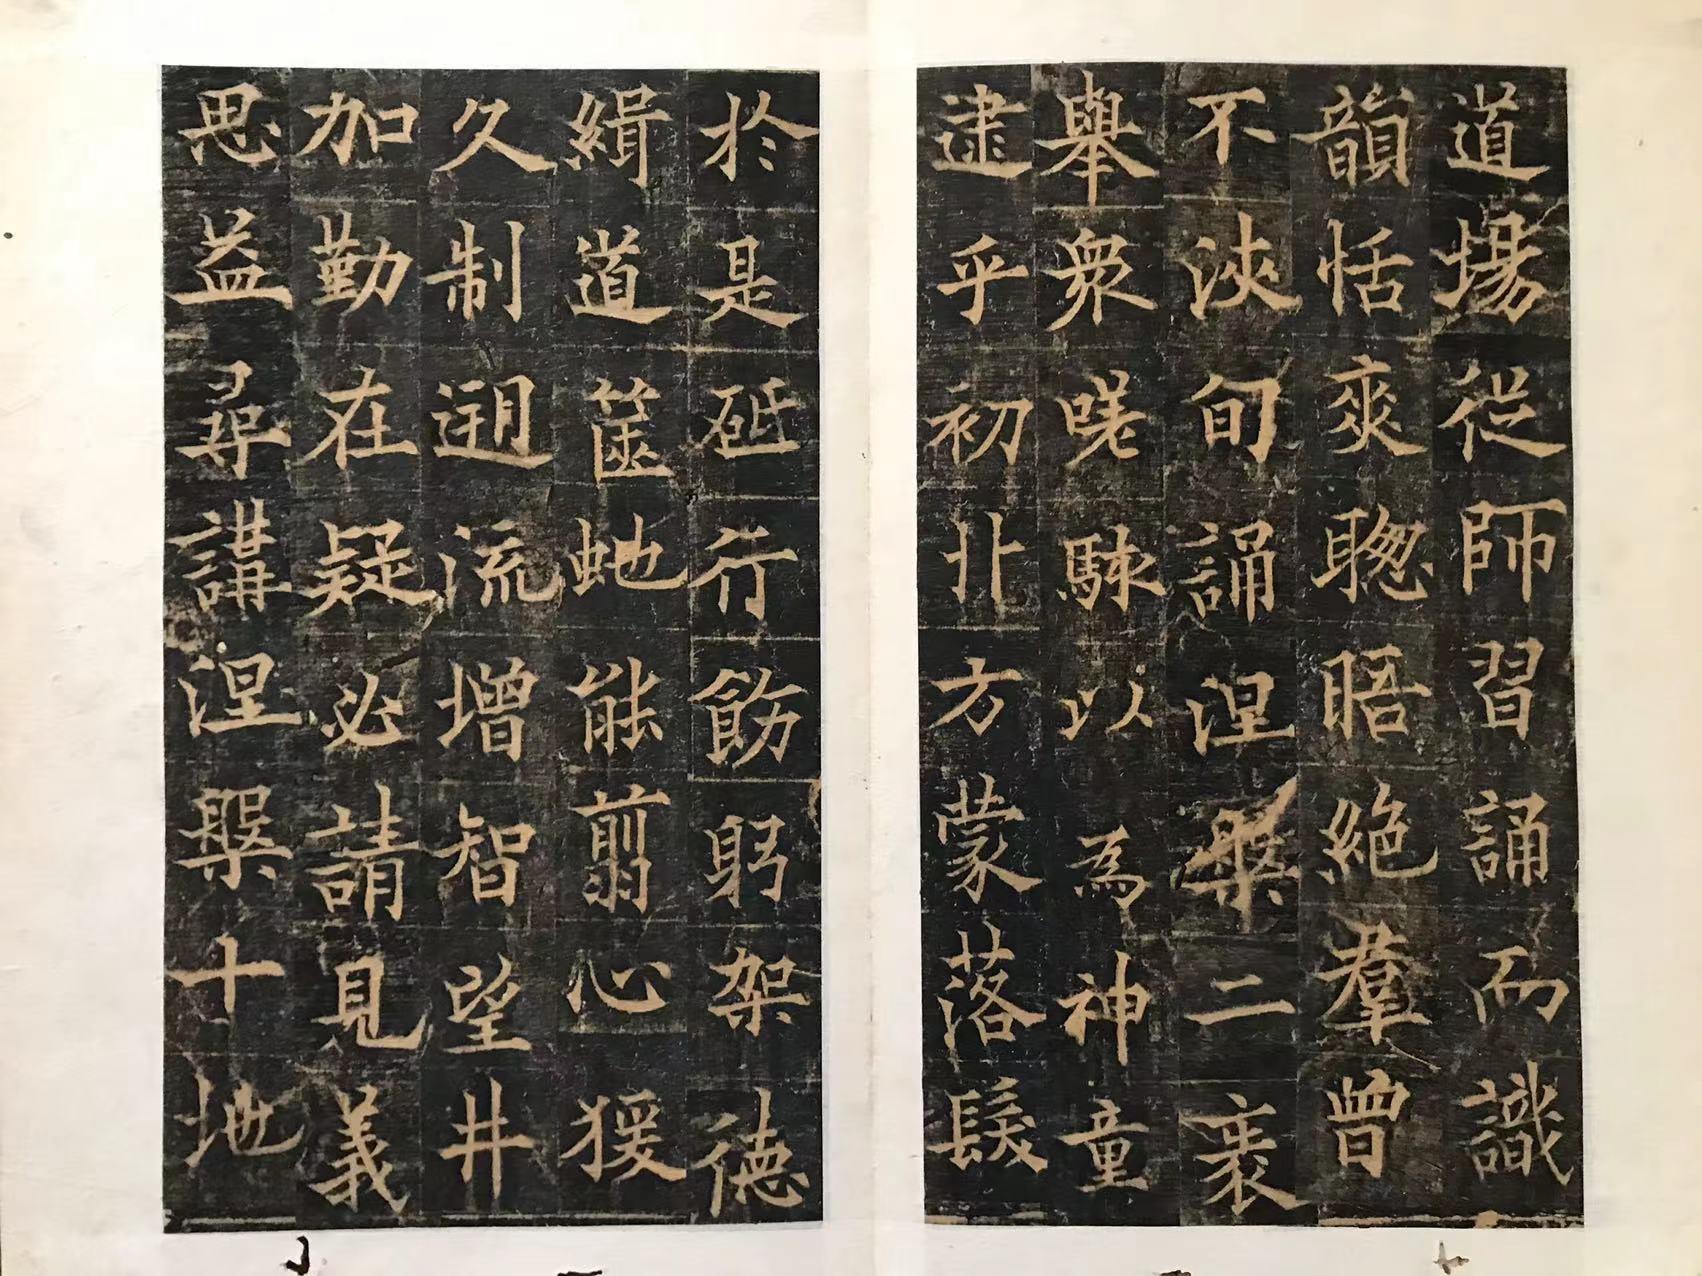 道場從師習誦而識
韻恬爽聦晤絶羣曽
不浹旬誦涅槃二袠
舉衆嗟駭以為神童
逮乎初北方蒙落髮
於是砥行飭躬架德
緝道篋虵能翦心猨
久制遡流增智望井
加勤在疑必請見義
思益尋講涅槃十地